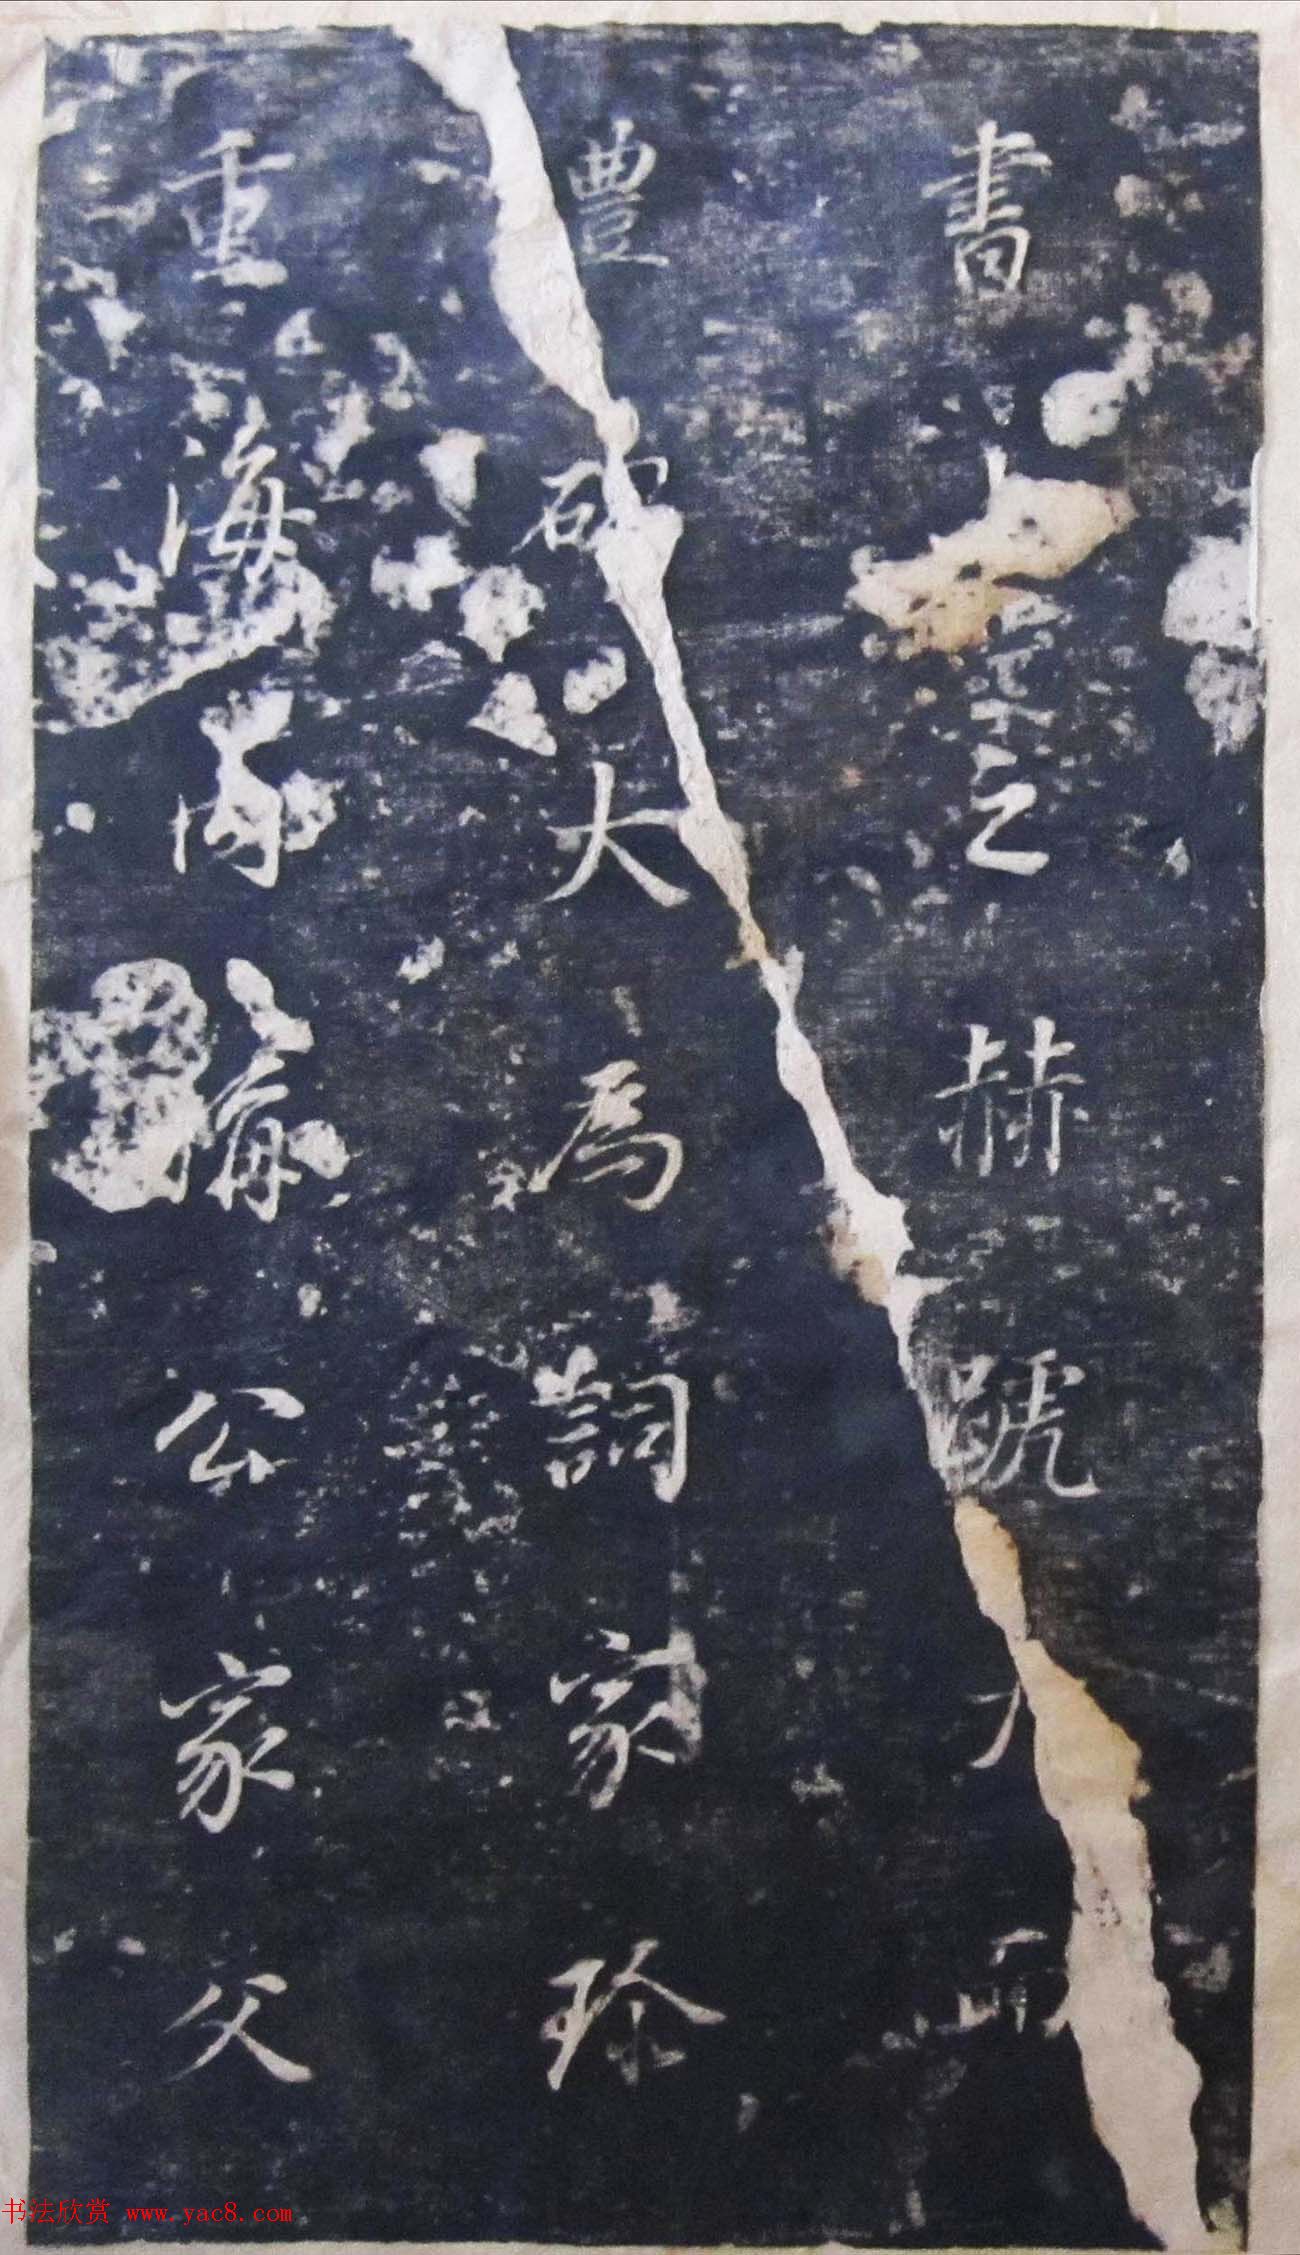 書之赫號
豊碑大為詞家珍
重海内公家父
书法欣赏 www.yac8.com